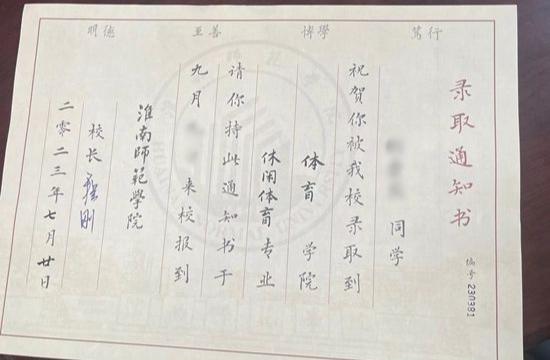 明德 至善 博學 篤行
录取通知书
编号 230381
同学
祝贺你被我校录取到
体育 学院
休闲体育专业
请你持此通知书于
九月 来校报到
淮南師範學院
校长 刚
二零二三年七月廿日